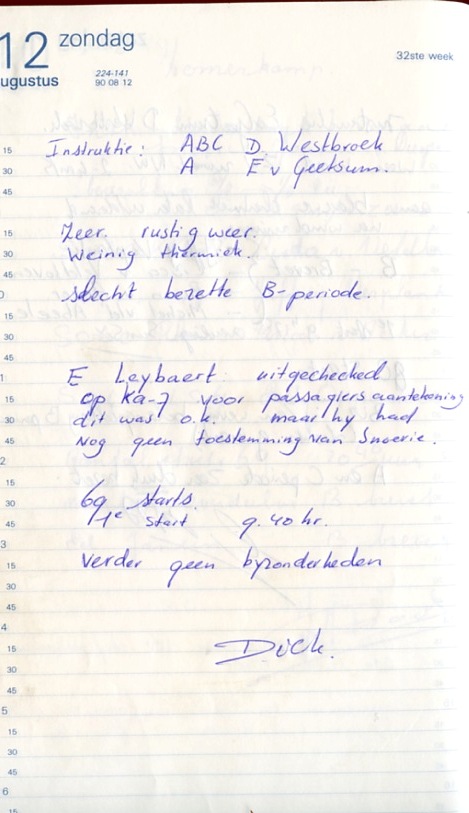 12 zondag
ugustus
224-141
90 08 12
32ste week
Instruktie: ABC D. Westbroek
A E v Geeksum.
Zeer rustig weer.
Weinig thermiek.
slecht bezette B-periode.
E Leybaert uitgechecked
op Ka-7 voor passagiersaantekening
dit was o.k. maar hy had
nog geen toestemming van Snoerie.
69 starts.
1e start 9.40 hr.
Verder geen byzonderheden
Dick.